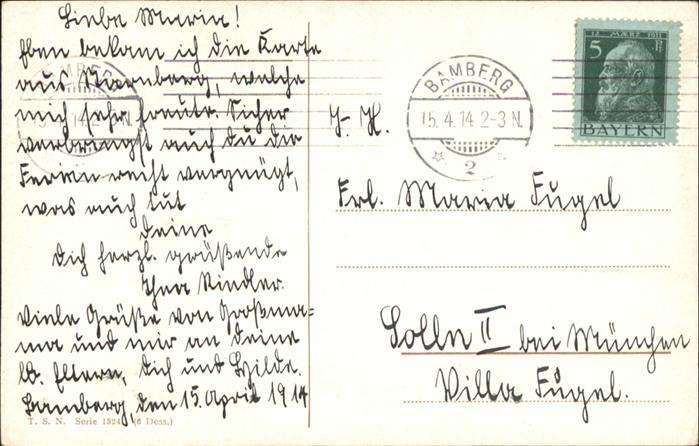 Liebe Maria!
Eben bekam ich die Karte
aus Starnberg, welche
mich sehr freute. Sicher
verbringst auch du die
Ferien recht vergnügt,
was auch tut
Deine
Dich herzl. grüßende
Thea Rindler.
Viele Grüße von Großma-
ma und mir an deine
lb. Eltern, Dich und Hilde.
Bamberg, den 15. April 1914
T. S. N. Serie 1524 (6 Dess.)
BAMBERG
15. 4. 14 2-3 N.
2
12. MÆRZ 1911
5 Pf
BAYERN
Frl. Maria Fügel
Solln II bei München
Villa Fügel.